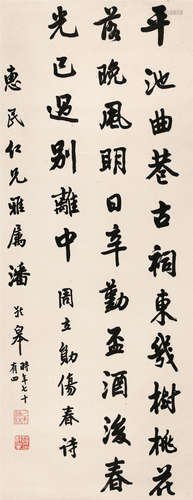 平池曲巷古祠東幾樹桃花
落晚風明日辛勤盃酒後春
光已過別離中 周立勛傷春詩
惠民仁兄雅屬 潘齡皋 時年七十
有四